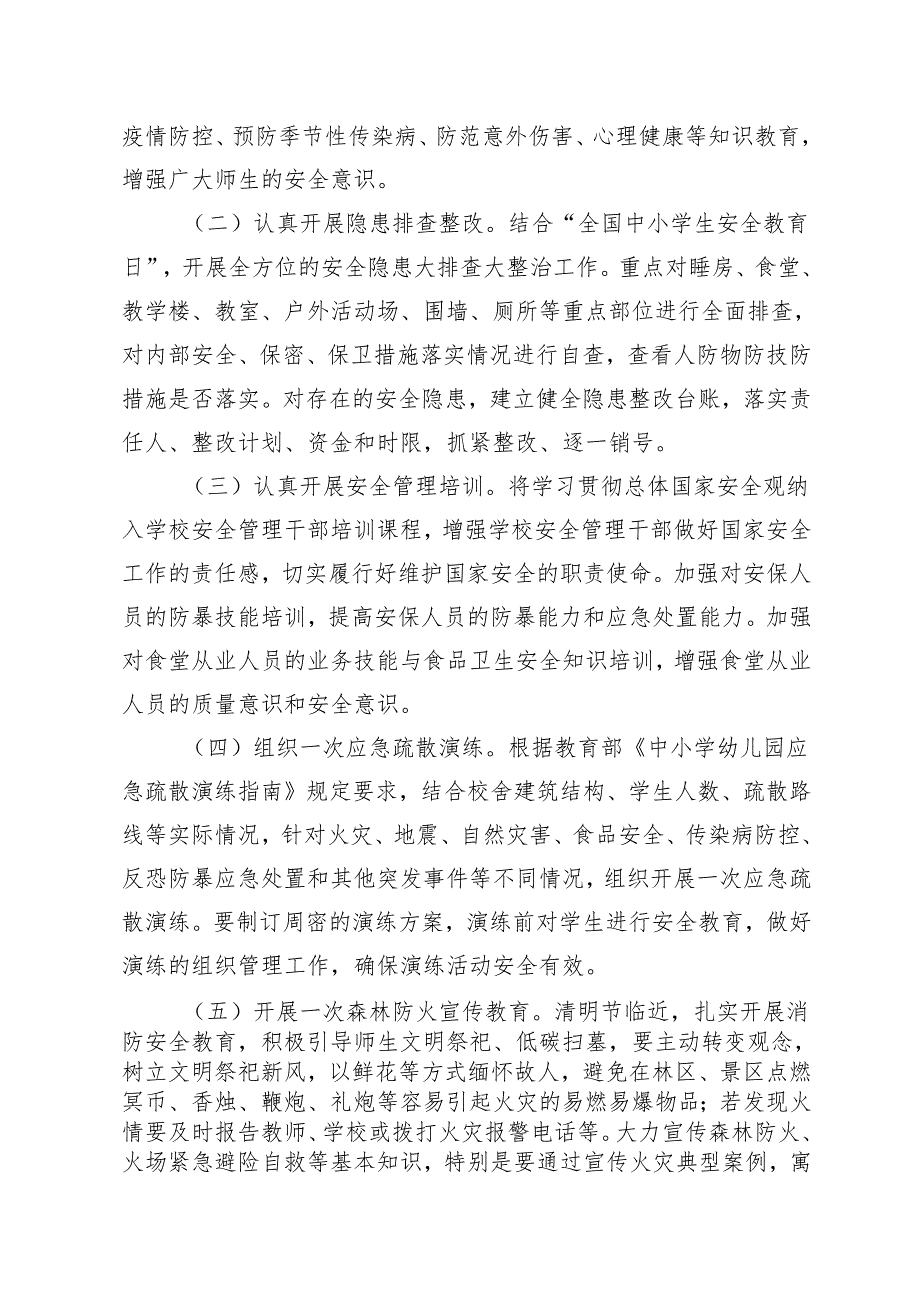 疫情防控、预防季节性传染病、防范意外伤害、心理健康等知识教育，
增强广大师生的安全意识。
（二）认真开展隐患排查整改。结合“全国中小学生安全教育
日”，开展全方位的安全隐患大排查大整治工作。重点对睡房、食堂、
教学楼、教室、户外活动场、围墙、厕所等重点部位进行全面排查，
对内部安全、保密、保卫措施落实情况进行自查，查看人防物防技防
措施是否落实。对存在的安全隐患，建立健全隐患整改台账，落实责
任人、整改计划、资金和时限，抓紧整改、逐一销号。
（三）认真开展安全管理培训。将学习贯彻总体国家安全观纳
入学校安全管理干部培训课程，增强学校安全管理干部做好国家安全
工作的责任感，切实履行好维护国家安全的职责使命。加强对安保人
员的防暴技能培训，提高安保人员的防暴能力和应急处置能力。加强
对食堂从业人员的业务技能与食品卫生安全知识培训，增强食堂从业
人员的质量意识和安全意识。
（四）组织一次应急疏散演练。根据教育部《中小学幼儿园应
急疏散演练指南》规定要求，结合校舍建筑结构、学生人数、疏散路
线等实际情况，针对火灾、地震、自然灾害、食品安全、传染病防控、
反恐防暴应急处置和其他突发事件等不同情况，组织开展一次应急疏
散演练。要制订周密的演练方案，演练前对学生进行安全教育，做好
演练的组织管理工作，确保演练活动安全有效。
（五）开展一次森林防火宣传教育。清明节临近，扎实开展消
防安全教育，积极引导师生文明祭祀、低碳扫墓，要主动转变观念，
树立文明祭祀新风，以鲜花等方式缅怀故人，避免在林区、景区点燃
冥币、香烛、鞭炮、礼炮等容易引起火灾的易燃易爆物品；若发现火
情要及时报告教师、学校或拨打火灾报警电话等。大力宣传森林防火、
火场紧急避险自救等基本知识，特别是要通过宣传火灾典型案例，寓